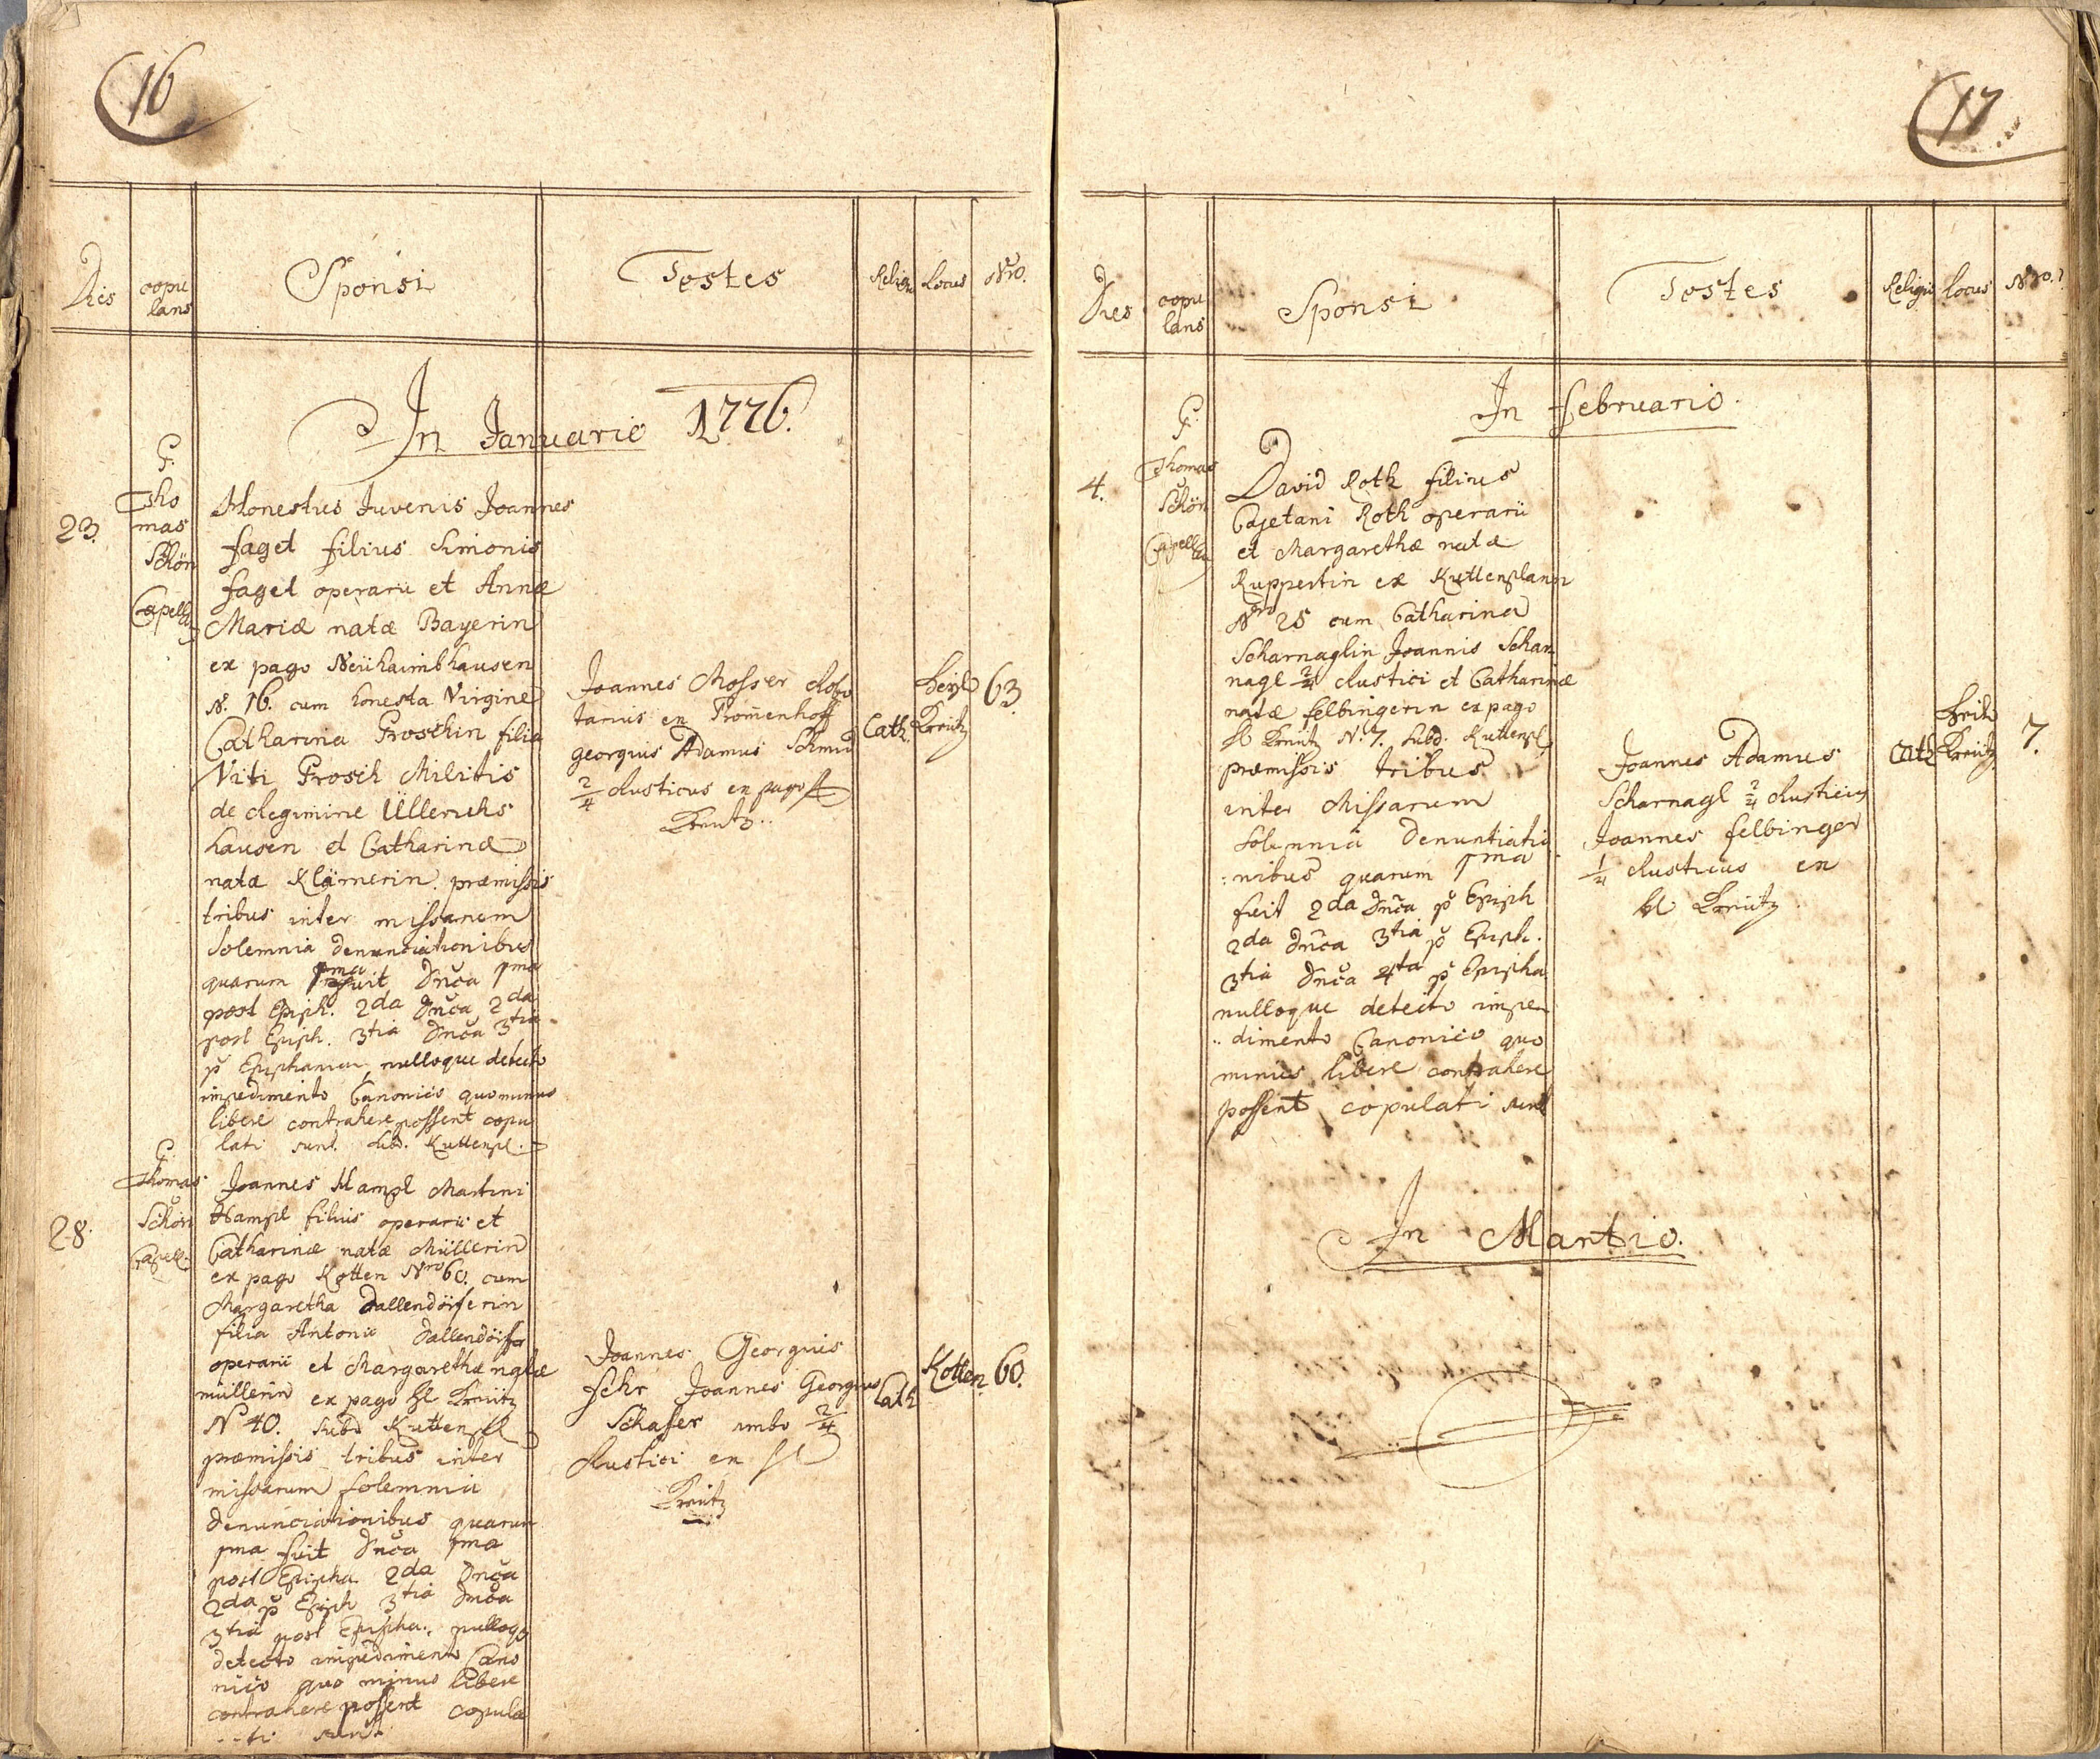 16
Dies
copu
lans
Sponsi
Testes
Religio
Locus
Nro.
In Januario 1776.
23.
P.
Tho
mas
Schön
Capell
Honestus Juvenis Joannes
faget filius Simonis
faget operarii et Annæ
Mariæ natæ Bayerin
ex pago Neühaimbhausen
N. 16. cum honesta Virgine
Catharina Froschin filia
Viti Frosch Militis
de Regimine Üllerichs
hausen et Catharinæ
natæ Klämerin præmissis
tribus inter missarum
Solemnia denunciationibus
quarum 1ma fuit Dnĉa 1ma
post Epiph. 2da Dnĉa 2da
post Epiph. 3tia Dnĉa 3tia
p Epiphaniam nulloque detecto
impedimento Canonico quominus
libere contrahere possent copu
lati sunt. Subd. Kuttenpl.
Joannes Mosser
tarius ex Promenhoff
georgius Adamus Schmid
2/4 Rusticus ex pago
Kreutz..
Cath.
Heyl
Kreutz
63.
28.
P.
Thomas
Schön
Capell.
Joannes Hampl Martini
Hampl filius operarii et
Catharinæ natæ Müllerin
ex pago Kotten Nro 60. cum
Margaretha Dallendörferin
filia Antonii Dallendörffer
operarii et Margarethæ natæ
müllerin ex pago Hl Kreütz
N 40. Subd Kuttenpl
præmissis tribus inter
missarum Solemnia
denunciationibus quarum
1ma fuit Dnĉa 1ma
post Epipha 2da Dnĉa
2da p Epiph 3tia Dnĉa
3tia post Epipha. nulloq
detecto impedimento Cano
nico quo minus libere
contrahere possent copula
..ti sunt
Joannes Georgius
fehr Joannes Georgius
Schaffer ambo 2/4
Rustici ex Hl
Kreutz
Cath
Kotten
60.
17
Dies
copu
lans
Sponsi
Testes
Religio
Locus
Nro.
In februario.
4.
P.
Thomas
Schön
Capell
David Roth filius
Cajetani Roth operarii
et Margarethæ natæ
Ruppertin ex Kuttenplann
Nro 25 cum Catharina
Scharnaglin Joannis Schar
nagl 2/4 Rustici et Catharinæ
natæ felbingerin ex pago
Hl Kreutz N. 7. Subd. Kuttenpl
præmissis tribus
inter Missarum
Solemnia Denuntiatio
:nibus quarum 1ma
fuit 2da Dnĉa p Epiph
2da Dnĉa 3tia p Epiph.
3tia Dnĉa 4ta p Epipha
nulloque detecto impe
..dimento Canonico quo
minus libere contrahere
possent copulati sunt
Joannes Adamus
Scharnagl 2/4 Rusticus
Joannes felbinger
1/4 Rusticus ex
Hl Kreutz.
Cath
Heil
Kreütz.
7.
In Martio.